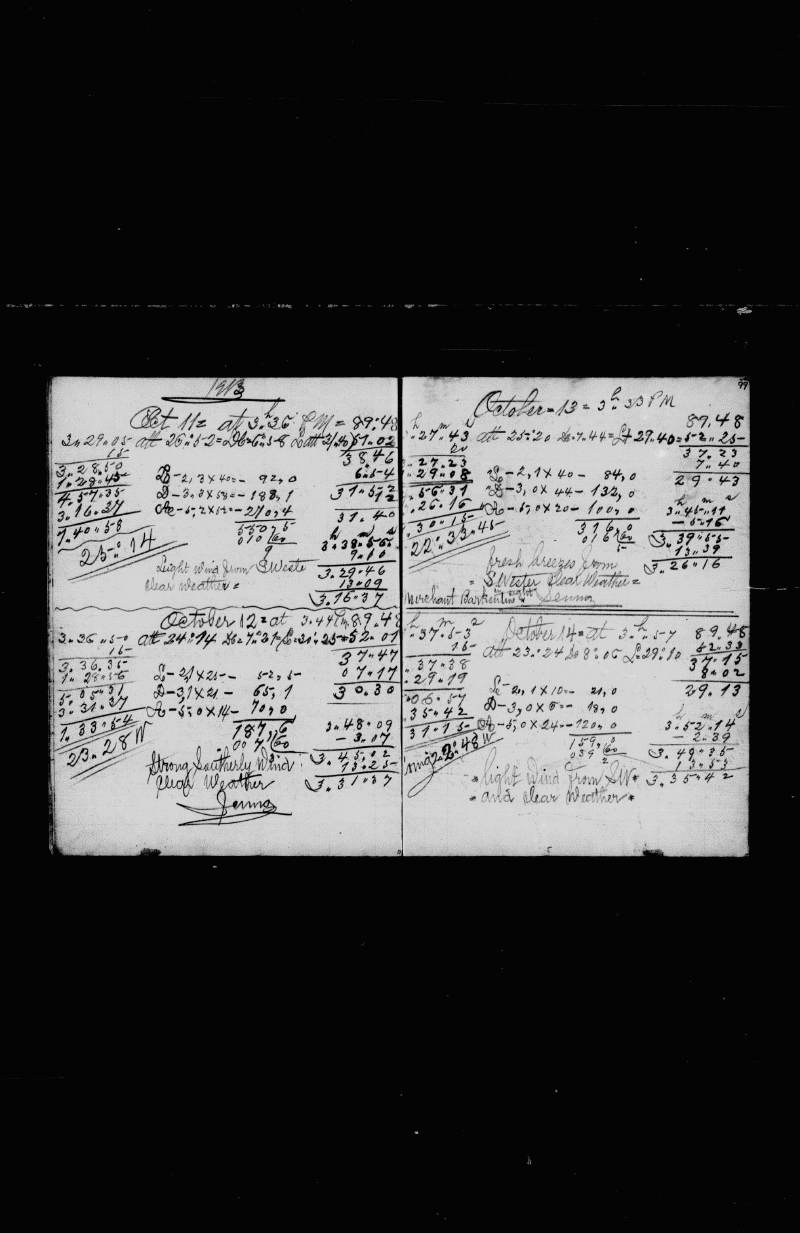 1913
Oct 11= at 3h.36 PM = 89:48
3,29.05 alt 26:52= D=6:58 51.02
15 38,46
3.28.50 6.54
1.28.45 D-2,3x40=- 92,0
4.57.35 D-3,0x - 188,1 31.52
3.16.37 A-5,2x52=- 270,4
1.40.58 550,5 31.40
25:14 010/60 3.38.56
9 9.10
Light Wind from S Weste 3.29.46
clear weather= 13.09
3.16.37
October 12=at 3.44 89.48
3.36.50 alt 24:14 D=7:21 52.01
15 37.47
3.36.35 07.17
1.28.56 D-2,1x25- 52,5
5.05.31 D-3,1x21- 65,1 30.30
3.31.37 A-5,0x14- 70,0
1.33.54 187,6 3.48.09
23.28 W 007/60 -3.07
Strong Southerly Wind 3.45.02
clear Weather 13.25
3.31.37
Jenna
99
October=13=3h.33 PM
h m s 89.48
.27.43 alt 25:20 D.7.44= 29.40= 52.25
20 37.23
.27.23 7.40
.29.08 -2,1x40- 84,0 29.43
.56.31 D-3,0x44-132,0 h m s
.26.16 A-5,0x20-100,0 3.45.11
.30.15 316,0 -5.16
22:33.45 016/60 3.39.55
5 13.39
fresh breezes from 3.26.16
SWester Clear Weather=
Merchant Barkentine Jenna
h m s October 14=at 3h.57 89.48
.37.53 alt 23:24 D 8:06 29:10 52.33
15 37.15
.37.38 8.02
.29.19 -2,1x10- 21,0 29.13
.06.57 D-3,0x6- 18,0 h m s
35.42 A-5,0x24- 120,0 3.52.14
31.15 159,0 -2.39
2:48 W 039/60 3.49.35
2 13.53
light Wind from SW 3.35.42
and clear Weather